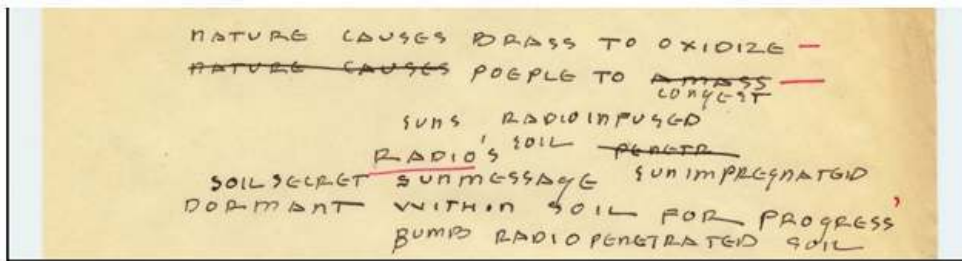 NATURE CAUSES BRASS TO OXIDIZE —
NATURE CAUSES POEPLE TO AMASS —
CONGEST
SUNS RADIOINFUSED
RADIO'S SOIL PENETR
SOILSECRET SUNMESSAGE SUNIMPREGNATEID
DORMANT WITHIN SOIL FOR PROGRESS'
BUMB RADIOPENETRATED SOIL